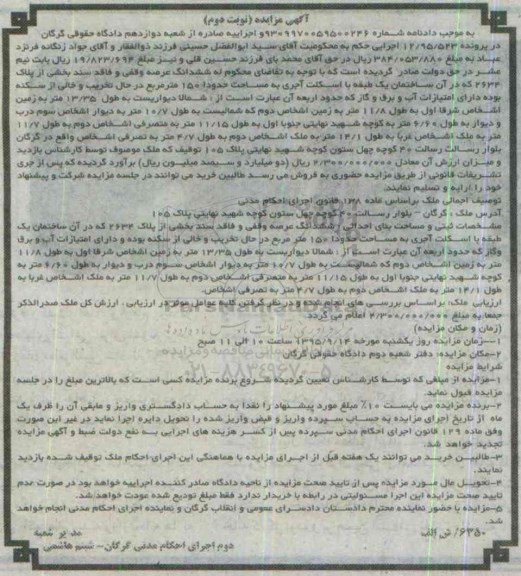 آگهی مزایده (نوبت دوم)
به موجب دادنامه شماره ۹۳۰۹۹۷۰۰۵۹۵۰۰۲۴۶ و اجراییه صادره از شعبه دوازدهم دادگاه حقوقی گرگان
در پرونده ۱۲/۹۵/۵۲۳ اجرایی حکم به محکومیت آقای سید ابوالفضل حسینی فرزند ذوالفقار و آقای جواد زنگانه فرزند
عباد به مبلغ ۳۸۴/۰۵۳/۸۸۰ ریال در حق آقای محمد بای فرزند حسین قلی و نیز مبلغ ۱۹/۸۲۳/۶۹۴ ریال بابت نیم
عشر در حق دولت صادر گردیده است که با توجه به تقاضای محکوم له ششدانگ عرصه وقفی و فاقد سند بخشی از پلاک
۲۶۳۴ که در آن ساختمان یک طبقه با اسکلت آجری به مساحت حدودا ۱۵۰ مترمربع در حال تخریب و خالی از سکنه
بوده دارای امتیازات آب و برق و گاز که حدود اربعه آن عبارت است از : شمالا دیواریست به طول ۱۳/۳۵ متر به زمین
اشخاص شرقا اول به طول ۱۱/۸ متر به زمین اشخاص دوم که شمالیست به طول ۱۰/۷ متر به دیوار اشخاص سوم درب
و دیوار به طول ۶/۶۰ متر به کوچه شهید نهایتی جنوبا اول به طول ۱۱/۱۵ متر به متصرفی اشخاص دوم به طول ۱۱/۷
متر به ملک اشخاص غربا به طول ۱۴/۱ متر به ملک اشخاص دوم به طول ۴/۷ متر به تصرفی اشخاص واقع در گرگان
بلوار رسالت رسالت ۴۰ کوچه چهل ستون کوچه شهید نهایتی پلاک ۱۰۵ توقیف که ملک موصوف توسط کارشناس بازدید
و میزان ارزش آن معادل ۲/۳۰۰/۰۰۰/۰۰۰ ریال (دو میلیارد و سیصد میلیون ریال) برآورد گردیده که پس از جری
تشریفات قانونی از طریق مزایده حضوری به فروش می رسد طالبین خرید می توانند در جلسه مزایده شرکت و پیشنهاد
خود را ارایه و تسلیم نمایند.
توصیف اجمالی ملک براساس ماده ۱۳۸ قانون اجرای احکام مدنی
آدرس ملک : گرگان – بلوار رسالت – ۴۰ کوچه چهل ستون کوچه شهید نهایتی پلاک ۱۰۵
مشخصات ثبتی و مساحت بنای احداثی : ششدانگ عرصه وقفی و فاقد سند بخشی از پلاک ۲۶۳۴ که در آن ساختمان یک
طبقه با اسکلت آجری به مساحت حدودا ۱۵۰ متر مربع در حال تخریب و خالی از سکنه بوده و دارای امتیازات آب و برق
وگاز که حدود اربعه آن عبارت است از : شمالا دیواریست به طول ۱۳/۳۵ متر به زمین اشخاص شرقا اول به طول ۱۱/۸
متر به زمین اشخاص دوم که شمالیست به طول ۱۰/۷ متر به دیوار اشخاص سوم درب و دیوار به طول ۶/۶۰ متر به
کوچه شهید نهایتی جنوبا اول به طول ۱۱/۱۵ متر به متصرفی اشخاص دوم به طول ۱۱/۷ متر به ملک اشخاص غربا به
طول ۱۴/۱ متر به ملک اشخاص دوم به طول ۴/۷ متر به تصرفی اشخاص.
ارزیابی ملک: براساس بررسی های انجام شده و در نظر گرفتن کلیه عوامل موثر در ارزیابی ، ارزش کل ملک صدرالذکر
جمعا به مبلغ ۲/۳۰۰/۰۰۰/۰۰۰ اعلام می گردد.
(زمان و مکان مزایده)
۱–زمان مزایده روز یکشنبه مورخه ۱۳۹۵/۹/۱۴ ساعت ۱۰ الی ۱۱ صبح
۲–مکان مزایده: دفتر شعبه دوم دادگاه حقوقی گرگان
شرایط مزایده
۱–مزایده از مبلغی که توسط کارشناس تعیین گردیده شروع برنده مزایده کسی است که بالاترین مبلغ را در جلسه
مزایده قبول نماید.
۲–برنده مزایده می بایست ۱۰٪ مبلغ مورد پیشنهاد را نقدا به حساب دادگستری واریز و مابقی آن را ظرف یک
ماه از تاریخ اجرای مزایده به حساب سپرده واریز و قبض واریز شده را تحویل دایره اجرا نماید در غیر این صورت
وفق ماده ۱۲۹ قانون اجرای احکام مدنی سپرده پس از کسر هزینه های اجرایی به نفع دولت ضبط و آگهی مزایده
تجدید خواهد شد.
۳–طالبین خرید می توانند یک هفته قبل از اجرای مزایده با هماهنگی این اجرای احکام ملک توقیف شده بازدید
نمایند.
۴–تحویل مال مورد مزایده پس از تایید صحت مزایده از ناحیه دادگاه صادر کننده اجراییه خواهد بود در صورت عدم
تایید صحت مزایده این اجرا مسئولیتی در رابطه با خریدار ندارد فقط مبلغ تودیع شده عودت خواهد شد.
۵–مزایده با حضور نماینده محترم دادستان دادسرای عمومی و انقلاب گرگان و نماینده اجرای احکام مدنی انجام خواهد
شد.
۶۳۵۰/ ش الف
مدیر شعبه
دوم اجرای احکام مدنی گرگان– نسیم هاشمی
ParsNamadData
۰۲۱-۸۸۳۴۹۶۷۰-۵